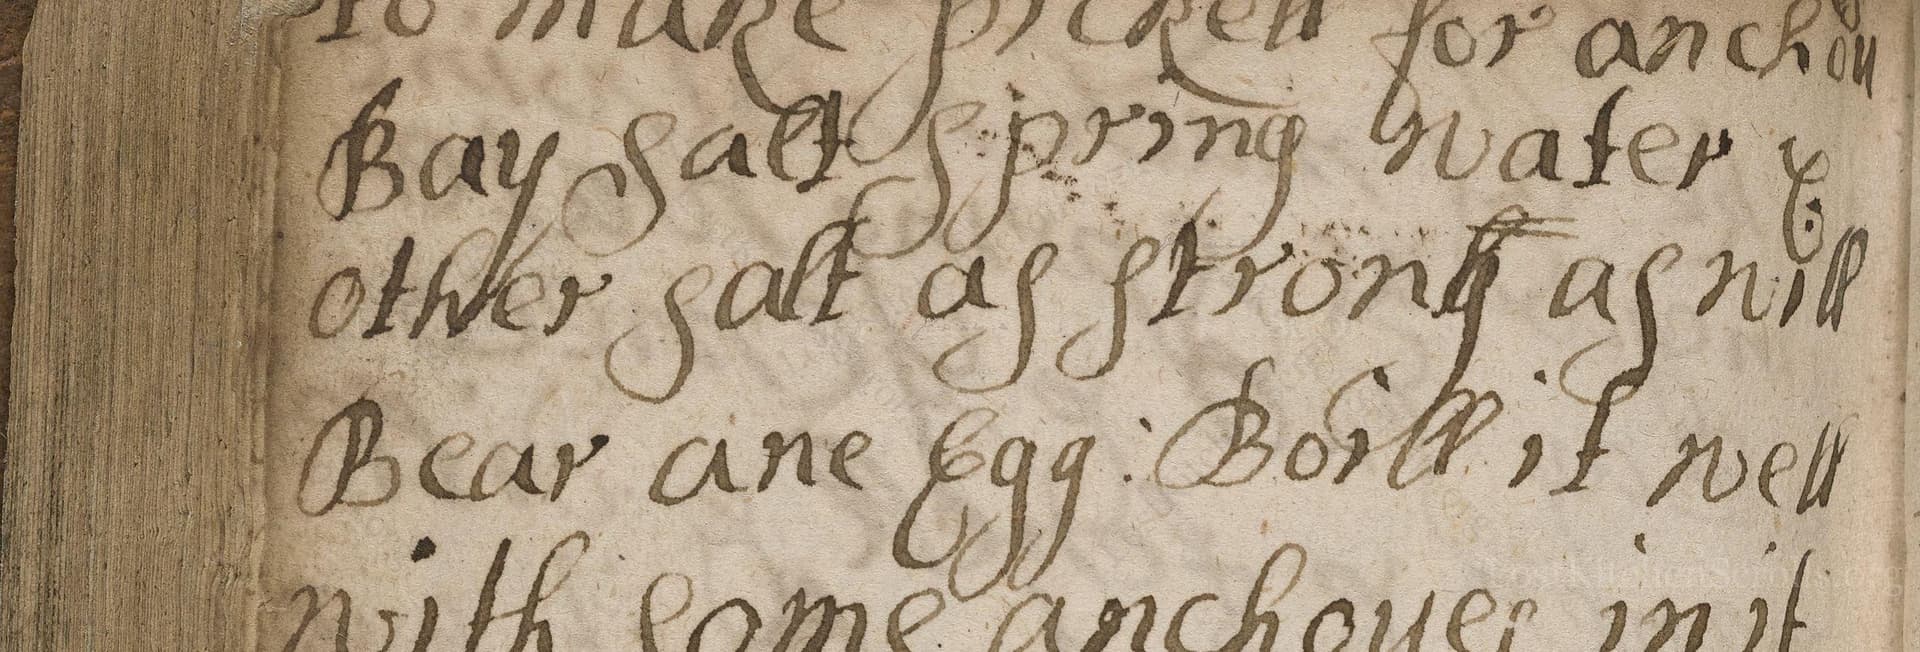 To make pickell for anchou
Bay salt spring water &
other salt as strong as will
Bear ane Egg: Boill it well
with some anchoues in it